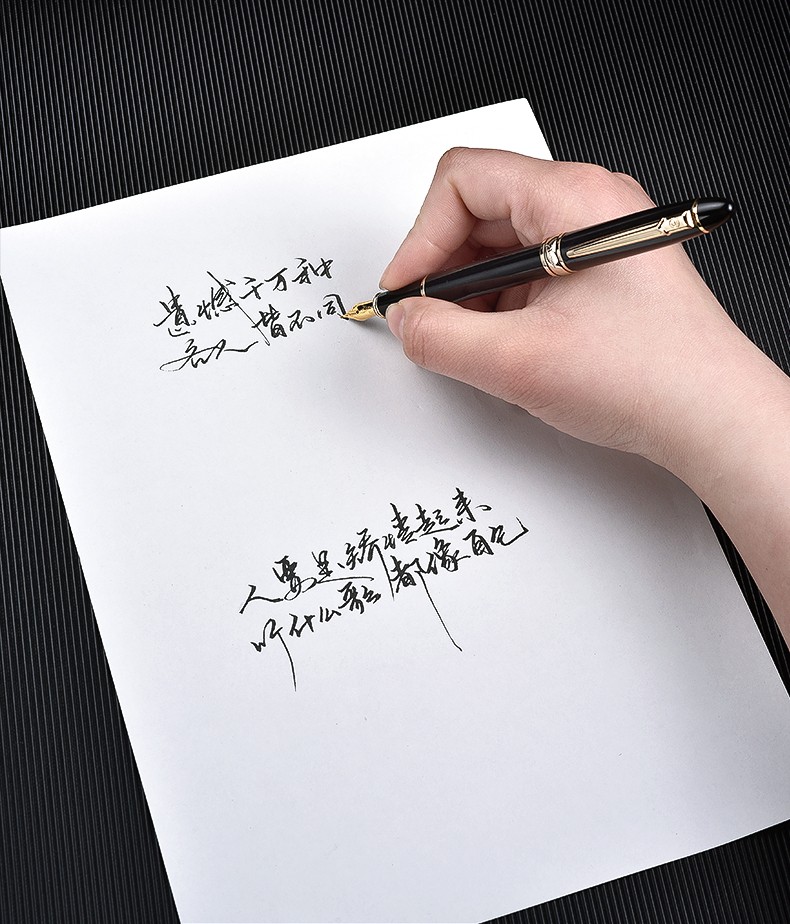 遗憾千万种
各人皆不同
人要是矫情起来
听什么歌都像自己